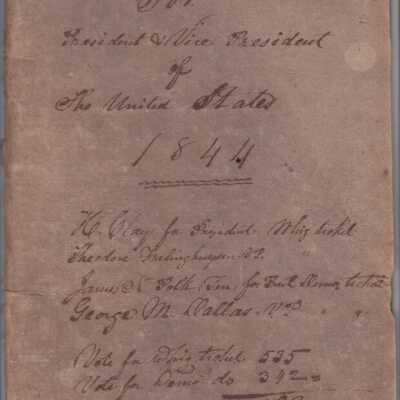 For
President & Vice President
of
The United States
1844
H. Clay for President Whig ticket
Theodore Frelinghuysen V.P. "
James K Polk (Ten) for Prest Democ ticket
George M. Dallas. V.P " "
Vote for Whig ticket 535
Vote for Democ do 342